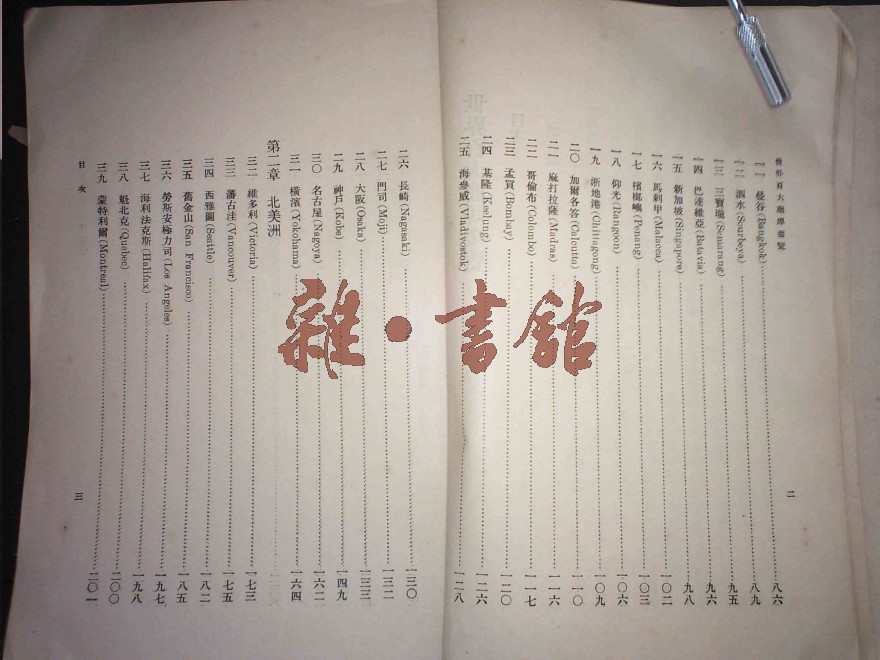 百大商埠要覽
二
一一 曼谷(Bangkok)……八六
一二 泗水(Sourbaya)……八九
一三 三寶壠(Semarang)……九五
一四 巴達維亞(Batavia)……九六
一五 新加坡(Singapore)……九八
一六 馬剌甲(Malacca)……一〇二
一七 檳榔嶼(Penang)……一〇三
一八 仰光(Rangoon)……一〇六
一九 浙地港(Chittagong)……一〇九
二〇 加爾各答(Calcutta)……一一〇
二一 麻打拉薩(Madras)……一一六
二二 哥倫布(Colombo)……一一七
二三 孟買(Bombay)……一二〇
二四 基隆(Keelung)……一二六
二五 海參威(Vladivostok)……一二八
二六 長崎(Nagasaki)……一三〇
二七 門司(Moji)……一三二
二八 大阪(Osaka)……一三三
二九 神戶(Kobe)……一四九
三〇 名古屋(Nagoya)……一六二
三一 橫濱(Yokohama)……一六四
第二章 北美洲
三二 維多利(Victoria)……一七三
三三 藩古洼(Vancouver)……一七五
三四 西雅圖(Seattle)……一八二
三五 舊金山(San Francisco)……一八五
三六 勞斯安極力司(Los Angeles)……一九七
三七 海利法克斯(Halifax)……一九八
三八 魁北克(Quebec)……二〇〇
三九 蒙特利爾(Montreal)……二〇一
目次
三
雜•書館